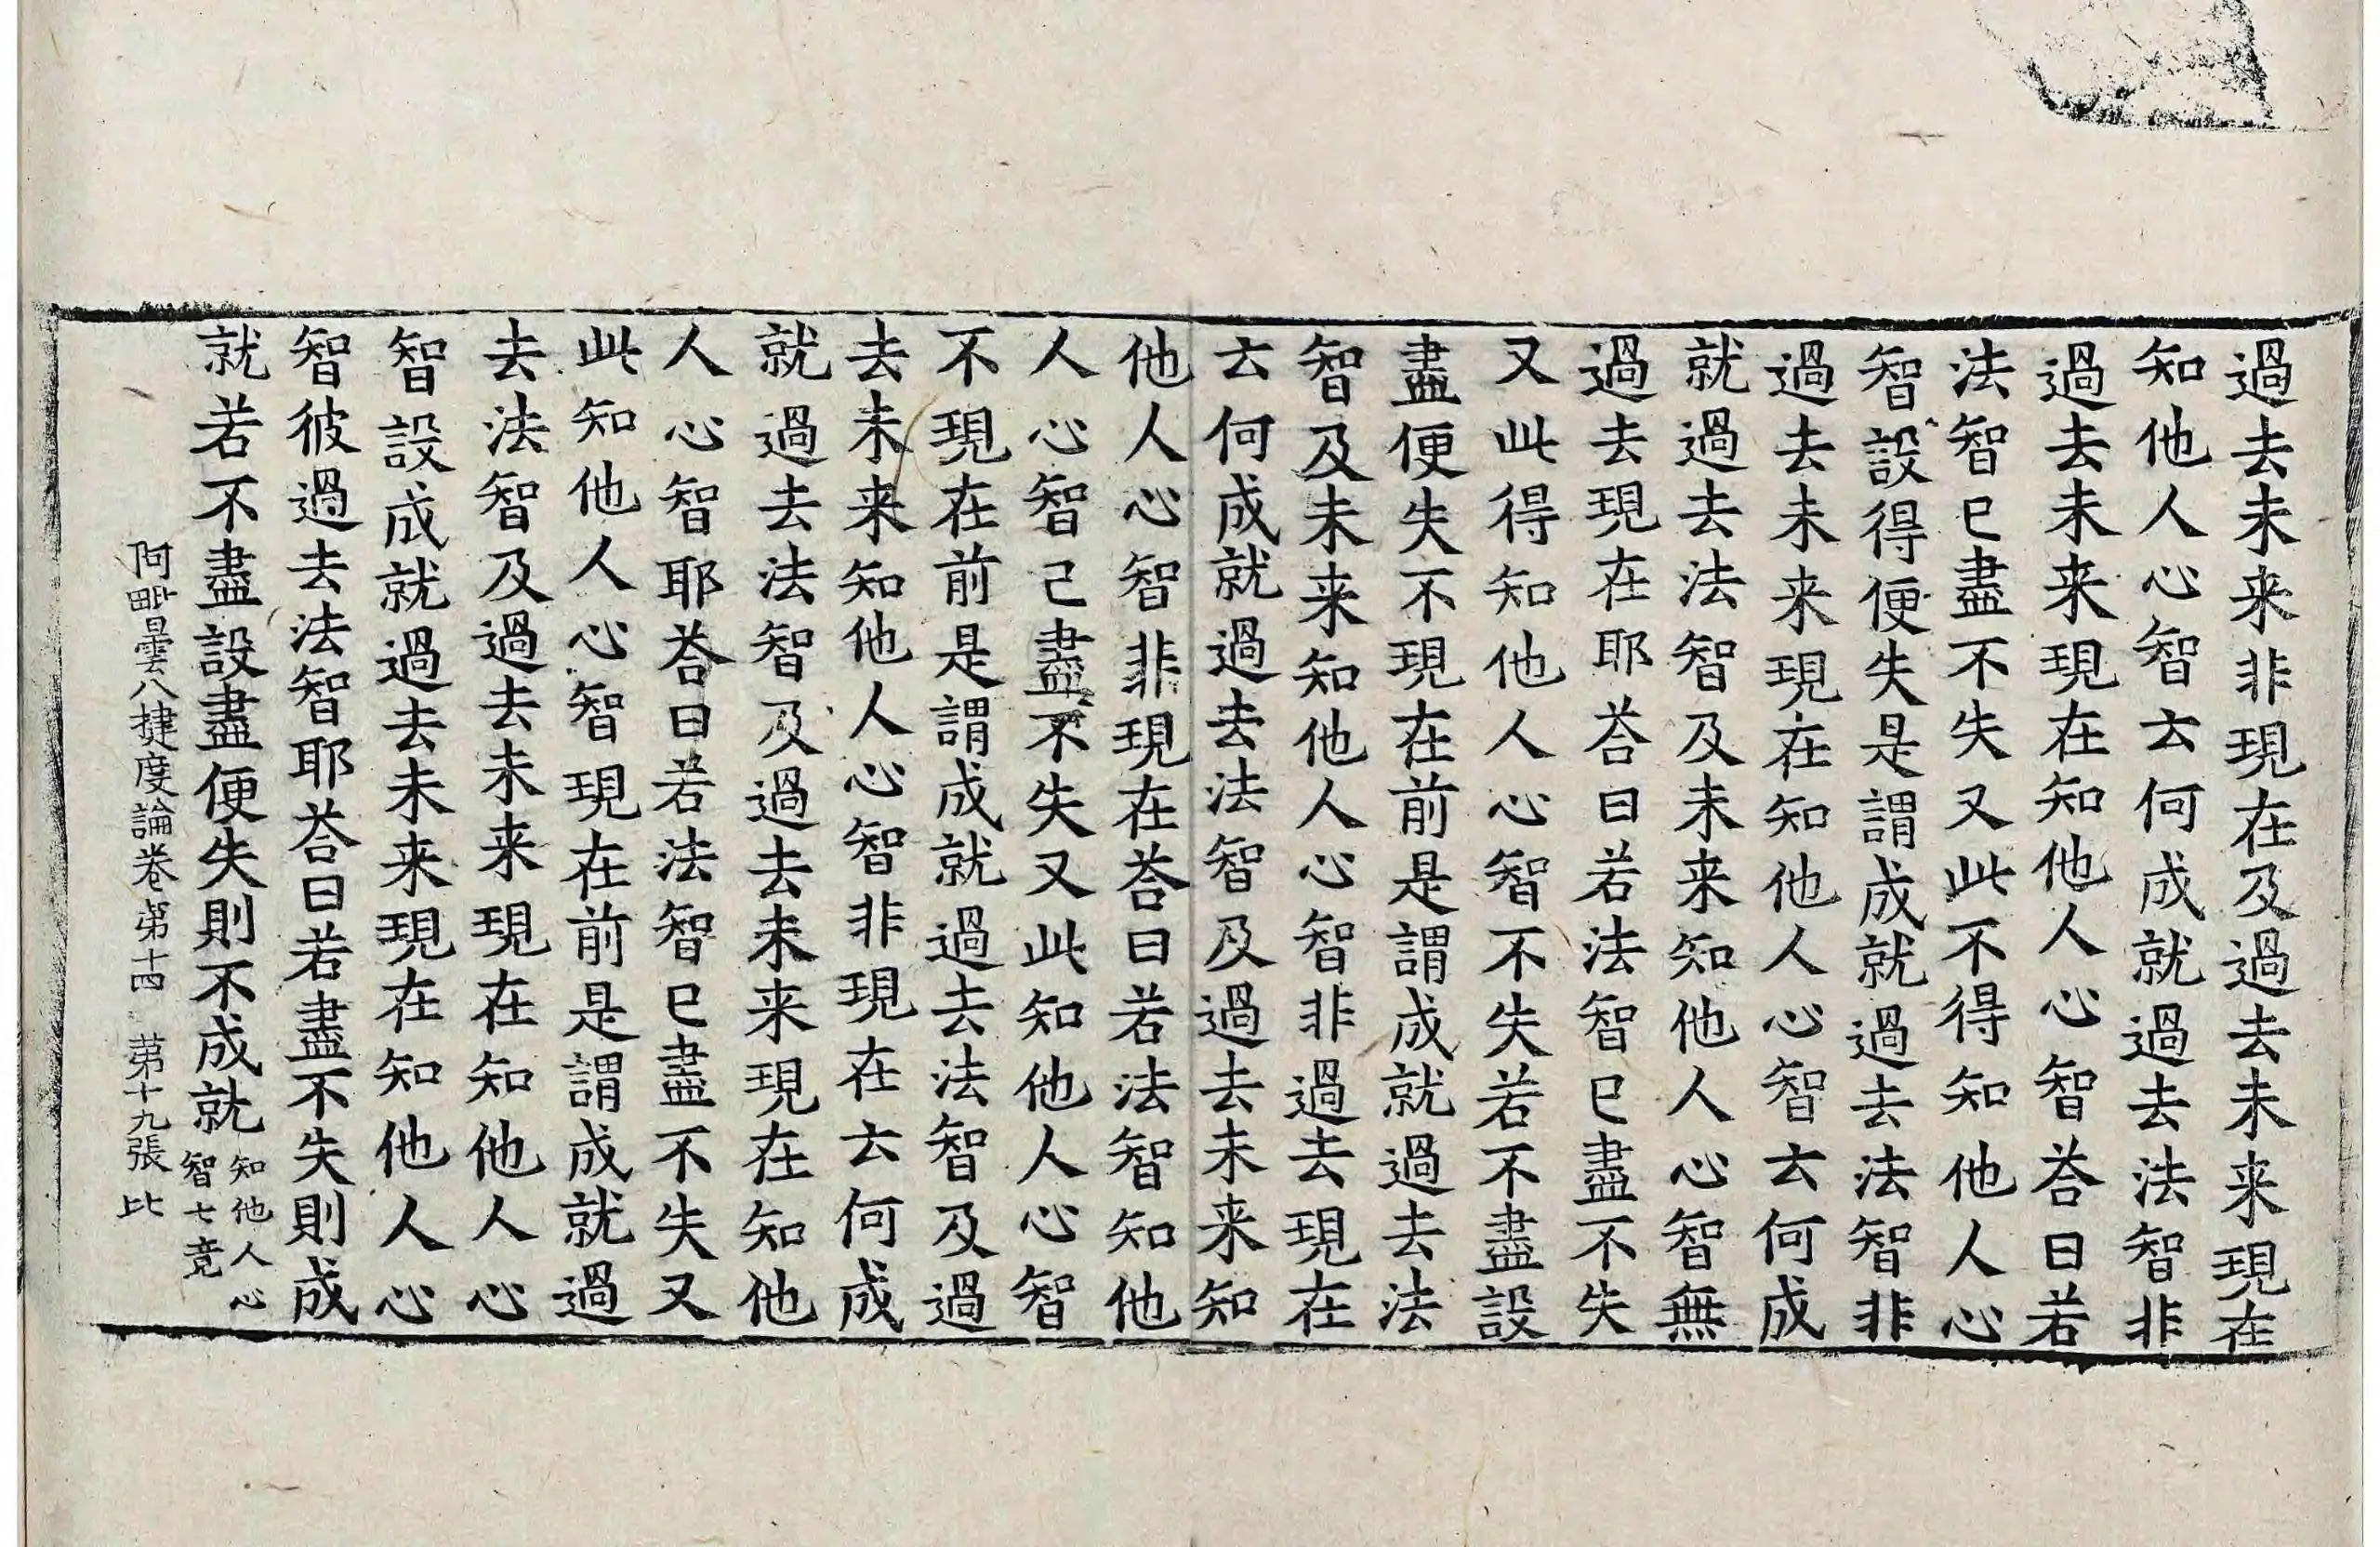 過去未来非現在及過去未来現在
知他人心智云何成就過去法智非
過去未来現在知他人心智荅曰若
法智已盡不失又此不得知他人心
智設得便失是謂成就過去法智非
過去未来現在知他人心智云何成
就過去法智及未来知他人心智無
過去現在耶荅曰若法智已盡不失
又此得知他人心智不失若不盡設
盡便失不現在前是謂成就過去法
智及未来知他人心智非過去現在
云何成就過去法智及過去未来知
他人心智非現在荅曰若法智知他
人心智己盡不失又此知他人心智
不現在前是謂成就過去法智及過
去未来知他人心智非現在云何成
就過去法智及過去未来現在知他
人心智耶荅曰若法智已盡不失又
此知他人心智現在前是謂成就過
去法智及過去未来現在知他人心
智設成就過去未来現在知他人心
智彼過去法智耶荅曰若盡不失則成
就若不盡設盡便失則不成就知他人心
智七竟
阿毗曇八揵度論卷第十四 苐十九張 比